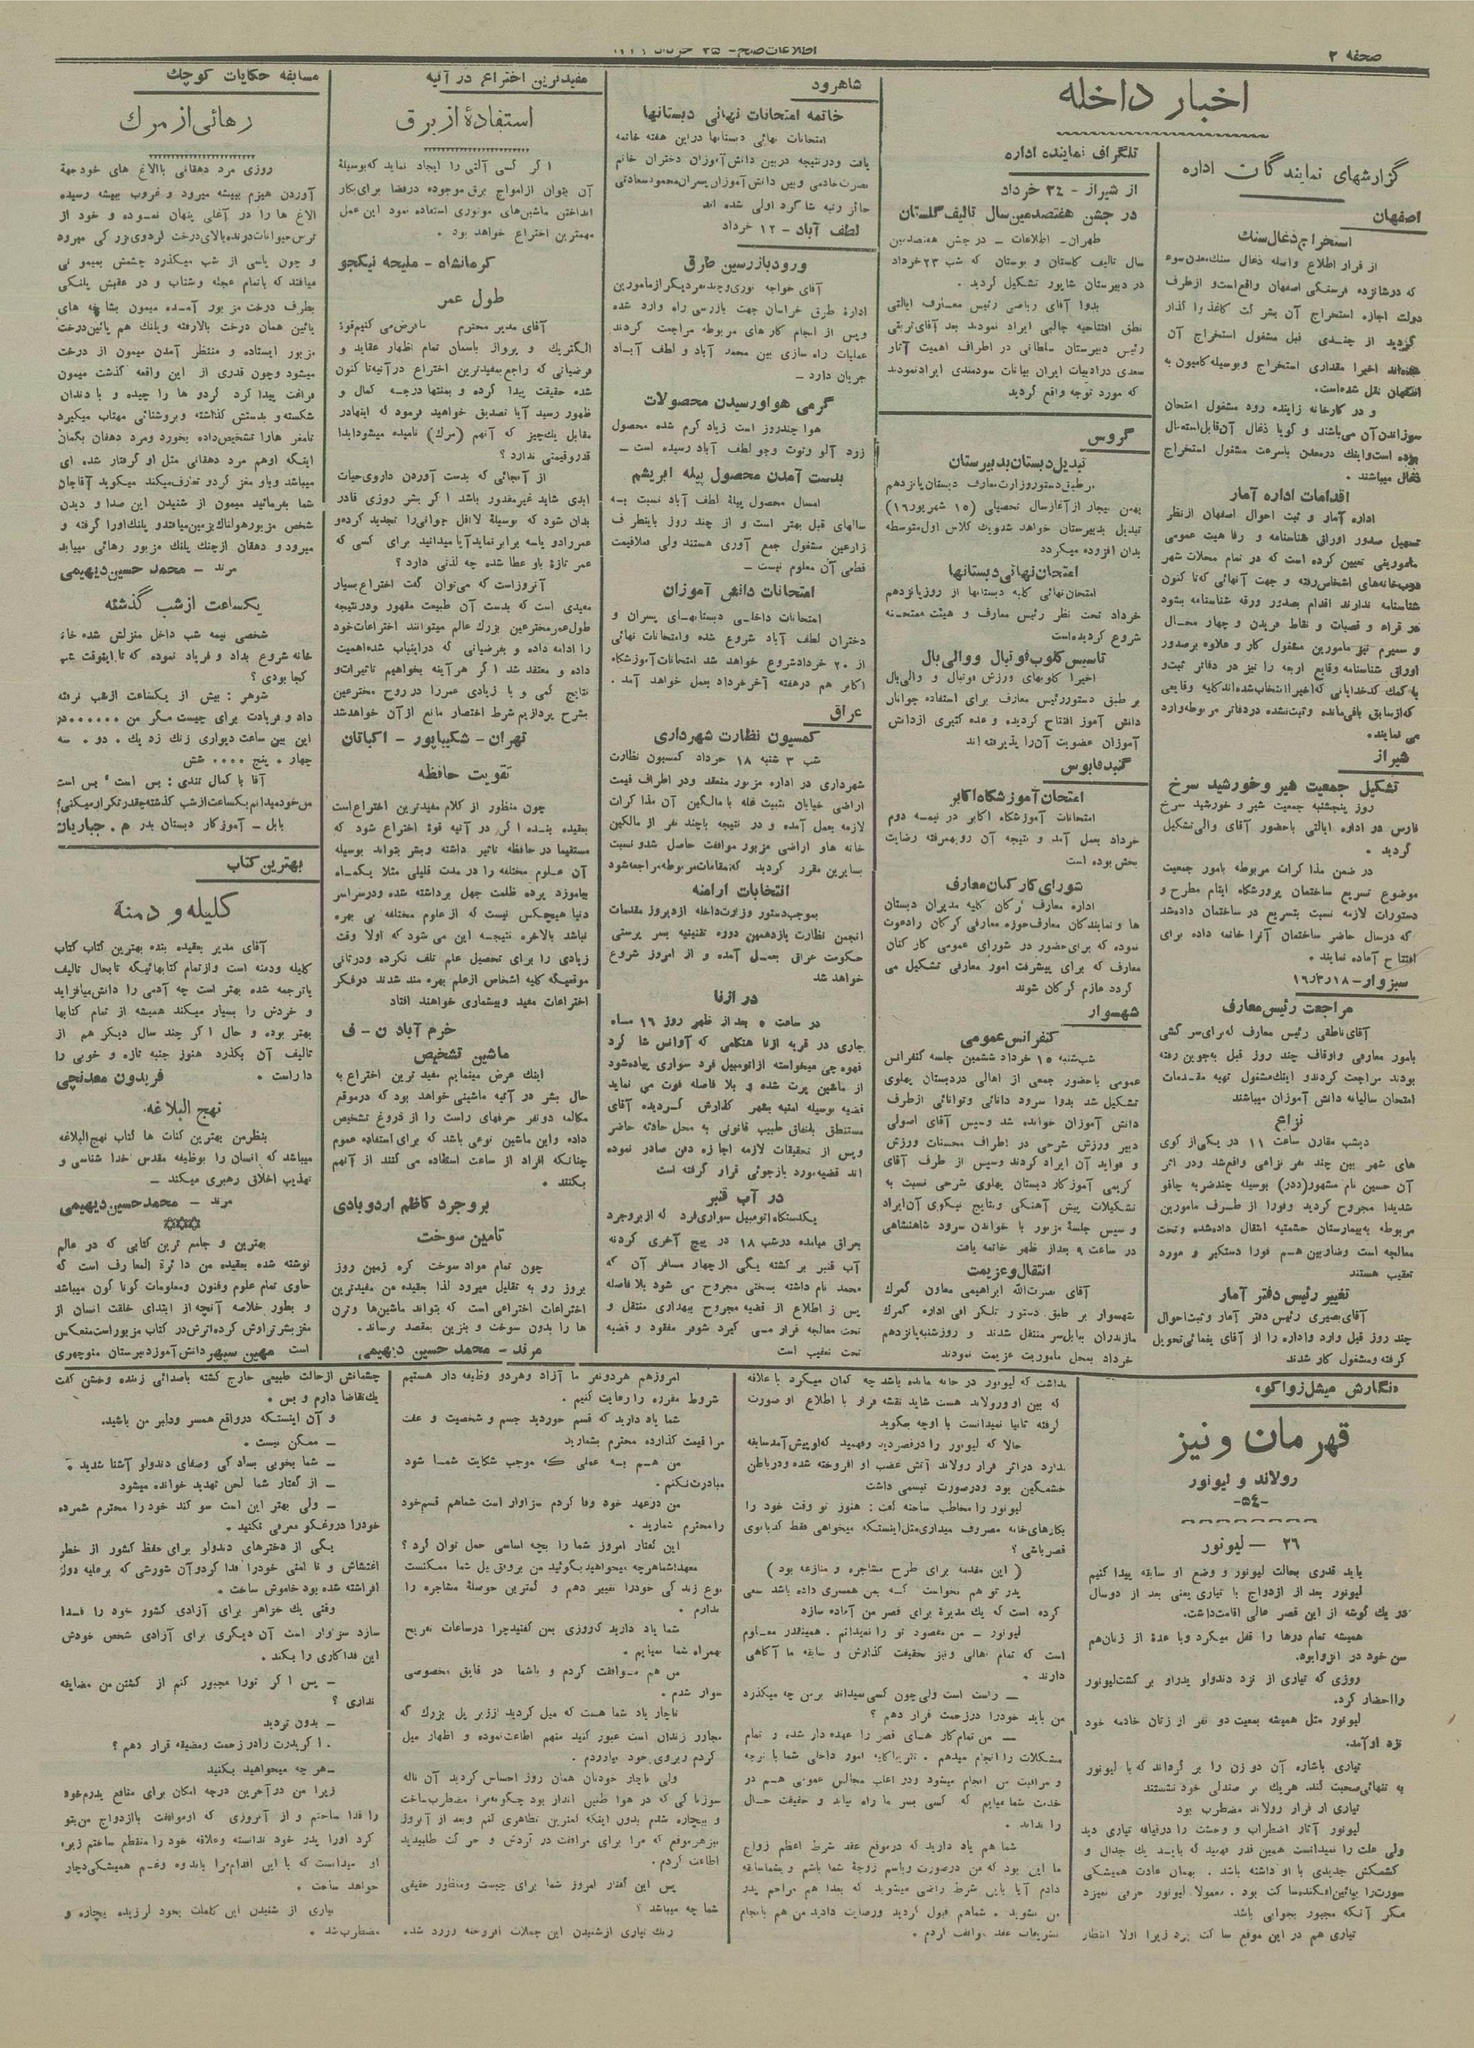 صفحه ۲
اطلاعات صبح - ۲۵ خرداد
اخبار داخله
گزارشهای نمایندگان اداره
اصفهان
استخراج ذغال سنگ
از قرار اطلاع واصله ذغال سنگ معدن سوء
که در شانزده فرسنگی اصفهان واقع است و از طرف
دولت اجازه استخراج آن بشرکت کاغذ واگذار
گردید از چندی قبل مشغول استخراج آن
شده‌اند اخیرا مقداری استخراج و بوسیله کامیون به
اصفهان نقل شده است.
و در کارخانه زاینده رود مشغول امتحان
سوزاندن آن می‌باشند و گویا ذغال آن قابل استعمال
بوده است و اینک در معدن باسرعت مشغول استخراج
ذغال میباشند.
اقدامات اداره آمار
اداره آمار و ثبت احوال اصفهان از نظر
تسهیل صدور اوراق شناسنامه و رفاهیت عمومی
مامورینی تعیین کرده است که در تمام محلات شهر
درب خانه‌های اشخاص رفته و جهت آنهائی که تا کنون
شناسنامه ندارند اقدام بصدور ورقه شناسنامه بشود
در قراء و قصبات و نقاط فریدن و چهار محال
و سمیرم نیز مامورین مشغول کار و علاوه بر صدور
اوراق شناسنامه وقایع اربعه را نیز در دفاتر ثبت و
با کمک کدخدایانی که اخیرا انتخاب شده‌اند کلیه وقایعی
که از سابق باقی مانده و ثبت نشده در دفاتر مربوطه وارد
می نمایند.
شیراز
تشکیل جمعیت شیر و خورشید سرخ
روز پنجشنبه جمعیت شیر و خورشید سرخ
فارس در اداره ایالتی باحضور آقای والی تشکیل
گردید .
در ضمن مذاکرات مربوطه بامور جمعیت
موضوع تسریع ساختمان پرورشگاه ایتام مطرح و
دستورات لازمه نسبت بتسریع در ساختمان داده شد
که درسال حاضر ساختمان آنرا خاتمه داده برای
افتتاح آماده نمایند .
سبزوار - ۱۶٫۳٫۱۸
مراجعت رئیس معارف
آقای ناطقی رئیس معارف که برای سرکشی
بامور معارفی و اوقاف چند روز قبل بجوین رفته
بودند مراجعت کردند و اینک مشغول تهیه مقدمات
امتحان سالیانه دانش آموزان میباشند
نزاع
دیشب مقارن ساعت ۱۱ در یکی از کوی
های شهر بین چند نفر نزاعی واقع شد و در اثر
آن حسین نام مشهور (ددر) بوسیله چند ضربه چاقو
شدیدا مجروح گردید وفورا از طرف مامورین
مربوطه به بیمارستان حشمتیه انتقال داده شد و تحت
معالجه است وضاربین هم فورا دستگیر و مورد
تعقیب هستند
تغییر رئیس دفتر آمار
آقای بصیری رئیس دفتر آمار و ثبت احوال
چند روز قبل وارد و اداره را از آقای یغمائی تحویل
گرفته و مشغول کار شدند
تلگراف نماینده اداره
از شیراز - ۲۴ خرداد
در جشن هفتصدمین سال تالیف گلستان
طهران - اطلاعات - در جشن هفتصدمین
سال تالیف گلستان و بوستان که شب ۲۳ خرداد
در دبیرستان شاپور تشکیل گردید .
بدوا آقای ریاضی رئیس معارف ایالتی
نطق افتتاحیه جالبی ایراد نمودند بعد آقای تربتی
رئیس دبیرستان سلطانی در اطراف اهمیت آثار
سعدی در ادبیات ایران بیانات سودمندی ایراد نمودند
که مورد توجه واقع گردید
گروس
تبدیل دبستان بدبیرستان
برطبق دستور وزارت معارف دبستان پانزدهم
بهمن بیجار از آغاز سال تحصیلی (۱۵ شهریور ۱۶)
تبدیل بدبیرستان خواهد شد و یک کلاس اول متوسطه
بدان افزوده میگردد
امتحان نهائی دبستانها
امتحان نهائی کلیه دبستانها از روز پانزدهم
خرداد تحت نظر رئیس معارف و هیئت ممتحنه
شروع گردیده است
تاسیس کلوب فوتبال و والی بال
اخیرا کلوبهای ورزش فوتبال و والی بال
بر طبق دستور رئیس معارف برای استفاده جوانان
دانش آموز افتتاح گردیده و عده کثیری از دانش
آموزان عضویت آن را پذیرفته اند
گنبد قابوس
امتحان آموزشگاه اکابر
امتحانات آموزشگاه اکابر در نیمه دوم
خرداد بعمل آمد و نتیجه آن رویهمرفته رضایت
بخش بوده است
شورای کارکنان معارف
اداره معارف گرگان کلیه مدیران دبستان
ها و نمایندگان معارف حوزه معارفی گرگان را دعوت
نموده که برای حضور در شورای عمومی کارکنان
معارف که برای پیشرفت امور معارفی تشکیل می
گردد عازم گرگان شوند
شهسوار
کنفرانس عمومی
شب شنبه ۱۵ خرداد ششمین جلسه کنفرانس
عمومی باحضور جمعی از اهالی در دبستان پهلوی
تشکیل شد بدوا سرود دانائی و توانائی از طرف
دانش آموزان خوانده شد وسپس آقای اصولی
دبیر ورزش شرحی در اطراف محسنات ورزش
و فواید آن ایراد کردند وسپس از طرف آقای
کریمی آموزگار دبستان پهلوی شرحی نسبت به
تشکیلات پیش آهنگی و نتایج نیکوی آن ایراد
و سپس جلسهٔ مزبور با خواندن سرود شاهنشاهی
در ساعت ۹ بعد از ظهر خاتمه یافت
انتقال و عزیمت
آقای نصرت‌الله ابراهیمی معاون گمرک
شهسوار بر طبق دستور تلگرافی اداره گمرک
مازندران ببابلسر منتقل شدند و روز شنبه پانزدهم
خرداد بمحل ماموریت عزیمت نمودند
شاهرود
خاتمه امتحانات نهائی دبستانها
امتحانات نهائی دبستانها در این هفته خاتمه
یافت و در نتیجه در بین دانش آموزان دختران خانم
نصرت خادمی و بین دانش آموزان پسران محمود سعادتی
حائز رتبه شاگرد اولی شده اند
لطف آباد - ۱۲ خرداد
ورود بازرسین طرق
آقای خواجه نوری و چند نفر دیگر از مامورین
ادارهٔ طرق خراسان جهت بازرسی راه وارد شده
وپس از انجام کارهای مربوطه مراجعت کردند
عملیات راه سازی بین محمد آباد و لطف آباد
جریان دارد -
گرمی هوا و رسیدن محصولات
هوا چند روز است زیاد گرم شده محصول
زرد آلو و توت وجو لطف آباد رسیده است -
بدست آمدن محصول پیله ابریشم
امسال محصول پیلهٔ لطف آباد نسبت به
سالهای قبل بهتر است و از چند روز باینطرف
زارعین مشغول جمع آوری هستند ولی فعلا قیمت
قطعی آن معلوم نیست -
امتحانات دانش آموزان
امتحانات داخلی دبستانهای پسران و
دختران لطف آباد شروع شده و امتحانات نهائی
از ۲۰ خرداد شروع خواهد شد امتحانات آموزشگاه
اکابر هم در هفته آخر خرداد بعمل خواهد آمد .
عراق
کمسیون نظارت شهرداری
شب ۳ شنبه ۱۸ خرداد کمسیون نظارت
شهرداری در اداره مزبور منعقد و در اطراف قیمت
اراضی خیابان تثبیت شده با مالکین آن مذاکرات
لازمه بعمل آمده و در نتیجه باچند نفر از مالکین
خانه ها و اراضی مزبور موافقت حاصل شد و نسبت
بسایرین مقرر گردید که بمقامات مربوطه مراجعه شود
انتخابات ارامنه
بموجب دستور وزارت داخله از دیروز مقدمات
انجمن نظارت یازدهمین دوره تقنینیه بسر پرستی
حکومت عراق بعمل آمده و از امروز شروع
خواهد شد
در ازنا
در ساعت ۵ بعد از ظهر روز ۱۶ ماه
جاری در قریه ازنا هنگامی که آوانس شاگرد
قهوه چی میخواسته از اتومبیل فرد سواری پیاده شود
از ماشین پرت شده و بلا فاصله فوت می نماید
قضیه بوسیله امنیه بشهر گذارش گردیده آقای
مستنطق باتفاق طبیب قانونی به محل حادثه حاضر
وپس از تحقیقات لازمه اجازه دفن صادر نموده
اند قضیه مورد بازجوئی قرار گرفته است
در آب قنبر
یکدستگاه اتومبیل سواری فرد که از بروجرد
بعراق میامده در شب ۱۸ در پیچ آخری گردنه
آب قنبر بر گشته یکی از چهار مسافر آن که
محمد نام داشته بسختی مجروح می شود بلا فاصله
پس از اطلاع از قضیه مجروح ببهداری منتقل و
تحت معالجه قرار می گیرد شوفر مفقود و قضیه
تحت تعقیب است
مفیدترین اختراع در آتیه
استفادهٔ از برق
اگر کسی آلتی را ایجاد نماید که بوسیلهٔ
آن بتوان از امواج برق موجوده در فضا برای بکار
انداختن ماشین‌های موتوری استفاده نمود این عمل
مهمترین اختراع خواهد بود .
کرمانشاه - ملیحه نیکجو
طول عمر
آقای مدیر محترم فرض می کنیم قوهٔ
الکتریک و پرواز باسمان تمام اظهار عقاید و
فرضیاتی که راجع بمفیدترین اختراع در آتیه تا کنون
شده حقیقت پیدا کرده و بمنتها درجه کمال و
ظهور رسید آیا تصدیق خواهید فرمود که اینهادر
مقابل یک چیز که آنهم (مرک) نامیده میشود ابدا
قدر و قیمتی ندارد ؟
از آنجائی که بدست آوردن داروی حیات
ابدی شاید غیر مقدور باشد اگر بشر روزی قادر
بدان شود که بوسیلهٔ لااقل جوانی را تجدید کرده و
عمر را دو یا سه برابر نماید آیا میدانید برای کسی که
عمر تازه باو عطا شده چه لذتی دارد ؟
آنروز است که می‌توان گفت اختراع بسیار
مفیدی است که بدست آن طبیعت مقهور و در نتیجه
طول عمر مخترعین بزرگ عالم میتوانند اختراعات خود
را ادامه داده و بفرضیاتی که در اینباب شده اهمیت
داده و معتقد شد اگر هر آینه بخواهیم تاثیرات و
نتایج کمی و یا زیادی عمر را در روح مخترعین
بشرح پردازیم شرط اختصار مانع از آن خواهد شد
تهران - شکیباپور - اکباتان
تقویت حافظه
چون منظور از کلام مفیدترین اختراع است
بعقیده بنده اگر در آتیه قوهٔ اختراع شود که
مستقیما در حافظه تاثیر داشته و بشر بتواند بوسیله
آن علوم مختلفه را در مدت قلیلی مثلا یکماه
بیاموزد پرده ظلمت جهل برداشته شده و در سراسر
دنیا هیچکس نیست که از علوم مختلفه بی بهره
نباشد بالاخره نتیجه این می شود که اولا وقت
زیادی را برای تحصیل علم تلف نکرده و در ثانی
موقعیکه کلیه اشخاص از علم بهره مند شدند در فکر
اختراعات مفید و بیشماری خواهند افتاد
خرم آباد ن - ف
ماشین تشخیص
اینک عرض مینمایم مفید ترین اختراع به
حال بشر در آتیه ماشینی خواهد بود که در موقع
مکالمه دو نفر حرفهای راست را از دروغ تشخیص
داده و این ماشین نوعی باشد که برای استفاده عموم
چنانکه افراد از ساعت استفاده می کنند از آنهم
بکنند .
بروجرد کاظم اردوبادی
تامین سوخت
چون تمام مواد سوخت کره زمین روز
بروز رو به تقلیل میرود لذا بعقیده من مفیدترین
اختراعات اختراعی است که بتواند ماشین‌ها و ترن
ها را بدون سوخت و بنزین بمقصد برساند .
مرند - محمد حسین دیهیمی
مسابقه حکایات کوچک
رهائی از مرك
روزی مرد دهقانی باالاغ های خود جهة
آوردن هیزم ببیشه میرود و غروب ببیشه رسیده
الاغ ها را در آغلی پنهان نموده و خود از
ترس حیوانات درنده بالای درخت گردوی بزرگی میرود
و چون پاسی از شب میگذرد چشمش بمیمونی
میافتد که باتمام عجله وشتاب و در عقبش پلنگی
بطرف درخت مزبور آمده میمون بشاخه های
پائین همان درخت بالا رفته و پلنک هم پائین درخت
مزبور ایستاده و منتظر آمدن میمون از درخت
میشود وچون قدری از این واقعه گذشت میمون
فراغت پیدا کرد گردو ها را چیده و با دندان
شکسته و بدستش گذاشته وبروشنائی مهتاب میگیرد
تامغز هارا تشخیص داده بخورد و مرد دهقان بگمان
اینکه اوهم مرد دهقانی مثل او گرفتار شده ای
میباشد و باو مغز گردو تعارف میکند میگوید آقاجان
شما بفرمائید میمون از شنیدن این صدا و دیدن
شخص مزبور هولناک بزمین میافتد و پلنک او را گرفته و
میرود و دهقان از چنک پلنک مزبور رهائی مییابد
مرند - محمد حسین دیهیمی
یکساعت از شب گذشته
شخصی نیمه شب داخل منزلش شده خانم
خانه شروع بداد و فریاد نموده که تا اینوقت شب
کجا بودی ؟
شوهر : بیش از یکساعت از شب نرفته
داد و فریادت برای چیست مگر من ...... در
این بین ساعت دیواری زنک زد یک . دو . سه
چهار . پنج .... شش
آقا با کمال تندی : بس است ' بس است
من خود میدانم یکساعت از شب گذشته چقدر تکرار میکنی!
بابل - آموزگار دبستان بدر م . جباریان
بهترین کتاب
کلیله و دمنة
آقای مدیر بعقیده بنده بهترین کتاب کتاب
کلیله ودمنه است و از تمام کتابهائیکه تابحال تالیف
یا ترجمه شده بهتر است چه آدمی را دانش میافزاید
و خردش را بسیار میکند همیشه از تمام کتابها
بهتر بوده و حال اگر چند سال دیگر هم از
تالیف آن بگذرد هنوز جنبه تازه و خوبی را
داراست . فریدون معدنچی
نهج البلاغه
بنظر من بهترین کتاب ها کتاب نهج البلاغه
میباشد که انسان را بوظیفه مقدس خدا شناسی و
تهذیب اخلاق رهبری میکند -
مرند - محمد حسین دیهیمی
بهترین و جامع ترین کتابی که در عالم
نوشته شده بعقیده من دائرة المعارف است که
حاوی تمام علوم وفنون و معلومات گوناگون میباشد
و بطور خلاصه آنچه از ابتدای خلقت انسان از
مغز بشر تراوش کرده اثرش در کتاب مزبور است منعکس
است مهین سپهر دانش آموز دبیرستان منوچهری
«نگارش میشل زواکو»
قهرمان ونیز
رولاند و لیونور
-۵۴-
۲۶ - لیونور
باید قدری بحالت لیونور و وضع او سابقه پیدا کنیم
لیونور بعد از ازدواج با تیاری یعنی بعد از دوسال
در یک گوشه از این قصر عالی اقامت داشت.
همیشه تمام درها را قفل میکرد وبا عدهٔ از زنان هم
سن خود در انزوا بود.
روزی که تیاری از نزد دندولو پدر او بر گشت لیونور
را احضار کرد.
لیونور مثل همیشه بمعیت دو نفر از زنان خادمه خود
نزد او آمد.
تیاری باشاره آن دو زن را بر گرداند که با لیونور
به تنهائی صحبت کند. هریک بر صندلی خود نشستند
تیاری از فرار رولاند مضطرب بود
لیونور آثار اضطراب و وحشت را در قیافه تیاری دید
ولی علت را نمیدانست همین قدر فهمید که باید یک جدال و
کشمکش جدیدی با او داشته باشد . بهمان عادت همیشگی
صورت را بپائین افکنده ساکت بود . معمولا لیونور حرفی نمیزد
مگر آنکه مجبور بجوابی باشد
تیاری هم در این موقع ساکت بود زیرا اولا انتظار
نداشت که لیونور در خانه مانده باشد چه گمان میکرد با علاقه
که بین او و رولاند هست شاید نقشه فرار با اطلاع او صورت
گرفته ثانیا نمیدانست با او چه بگوید
حالا که لیونور را در قصر دید و فهمید که او پیش آمد سابقه
ندارد در اثر فرار رولاند آتش غضب او افروخته شده و در باطن
خشمگین بود و در صورت تبسمی داشت
لیونور را مخاطب ساخته گفت : هنوز تو وقت خود را
بکارهای خانه مصروف میداری مثل اینستکه میخواهی فقط کدبانوی
قصر باشی ؟
( این مقدمه برای طرح مشاجره و منازعه بود )
پدر تو هم نخواست که بمن همسری داده باشد سعی
کرده است که یک مدیرهٔ برای قصر من آماده سازد
لیونور - من مقصود تو را نمیدانم . همینقدر معلوم
است که تمام اهالی ونیز بحقیقت گذارش و سابقه ما آگاهی
دارند .
- راست است ولی چون کسی نمیداند بر من چه میگذرد
من باید خود را در زحمت قرار دهم ؟
- من تمام کارهای قصر را عهده دار شده و تمام
مشکلات را انجام میدهم . تقریبا کلیه امور داخلی شما با توجه
و مراقبت من انجام میشود و در اغلب مجالس عمومی هم در
خدمت شما میایم که کسی بسر ما راه نیابد و حقیقت حال
را بداند .
شما هم یاد دارید که در موقع عقد شرط اعظم زواج
ما این بود که من در صورت و باسم زوجهٔ شما باشم و بشما سابقه
دادم آیا باین شرط راضی میشوید که بعدا هم مزاحم پدر
من نشوید . شما هم قبول کردید و رضایت دادید من هم بانجام
تشریفات عقد موافقت کردم .
امروز هم هر دو نفر ما آزاد و هر دو وظیفه دار هستیم
شروط مقرره را رعایت کنیم .
شما یاد دارید که قسم خوردید جسم و شخصیت و عفت
مرا قیمت گذارده محترم بشمارید
من هم به عملی که موجب شکایت شما شود
مبادرت نکنم .
من در عهد خود وفا کردم سزاوار است شما هم قسم خود
را محترم شمارید .
این گفتار امروز شما را بچه اساسی حمل توان کرد ؟
معهذا شما هر چه میخواهید بگوئید من بر وفق میل شما ممکنست
نوع زندگی خود را تغییر دهم و کمترین حوصلهٔ مشاجره را
ندارم .
شما یاد دارید که روزی بمن گفتید چرا در ساعات تفریح
بهمراه شما نمیایم .
من هم موافقت کردم و باشما در قایق مخصوصی
سوار شدم .
ناچار یاد شما هست که میل کردید از زیر پل بزرگ که
مجاور زندان است عبور کنید منهم اطاعت نموده و اظهار میل
کردم و بروی خود نیاوردم .
ولی ناچار خودتان همان روز احساس کردید آن ناله
سوزناکی که در هوا طنین انداز بود چگونه مرا مضطرب ساخت
و بیچاره شدم بدون اینکه کمترین تظاهری کنم و بعد از آنروز
نیز هر موقع که مرا برای مرافقت در گردش و حرکت طلبیدید
اطاعت کردم .
پس این گفتار امروز شما برای چیست و منظور حقیقی
شما چه میباشد ؟
رنک تیاری از شنیدن این جملات افروخته و زرد شد .
چشمانش از حالت طبیعی خارج گشته باصدائی زننده و خشن گفت
یک تقاضا دارم و بس .
و آن اینستکه در واقع همسر و دلبر من باشید.
- ممکن نیست .
- شما بخوبی بسادگی و صفای دندولو آشنا شدید .
- از گفتار شما لحن تهدید خوانده میشود
- ولی بهتر این است سوگند خود را محترم شمرده
خود را دروغگو معرفی نکنید .
یکی از دخترهای دندولو برای حفظ کشور از خطر
اغتشاش و نا امنی خود را فدا کرد و آن شورشی که بر علیه دولت
افراشته شده بود خاموش ساخت .
وقتی یک خواهر برای آزادی کشور خود را فدا
سازد سزاوار است آن دیگری برای آزادی شخص خودش
این فداکاری را بکند .
- پس اگر تو را مجبور کنم از کشتن من مضایقه
نداری ؟
- بدون تردید
. اگر پدرت را در زحمت و مضیقه قرار دهم ؟
- هر چه میخواهید بکنید
زیرا من در آخرین درجه امکان برای منافع پدرم خود
را فدا ساختم و از آنروزی که او موافقت باازدواج من بتو
کرد او را پدر خود ندانسته و علاقه خود را منقطع ساختم زیرا
او میدانست که با این اقدام مرا باندوه و غم همیشگی دچار
خواهد ساخت .
تیاری از شنیدن این کلمات بخود لرزیده بیچاره و
مضطرب شد .